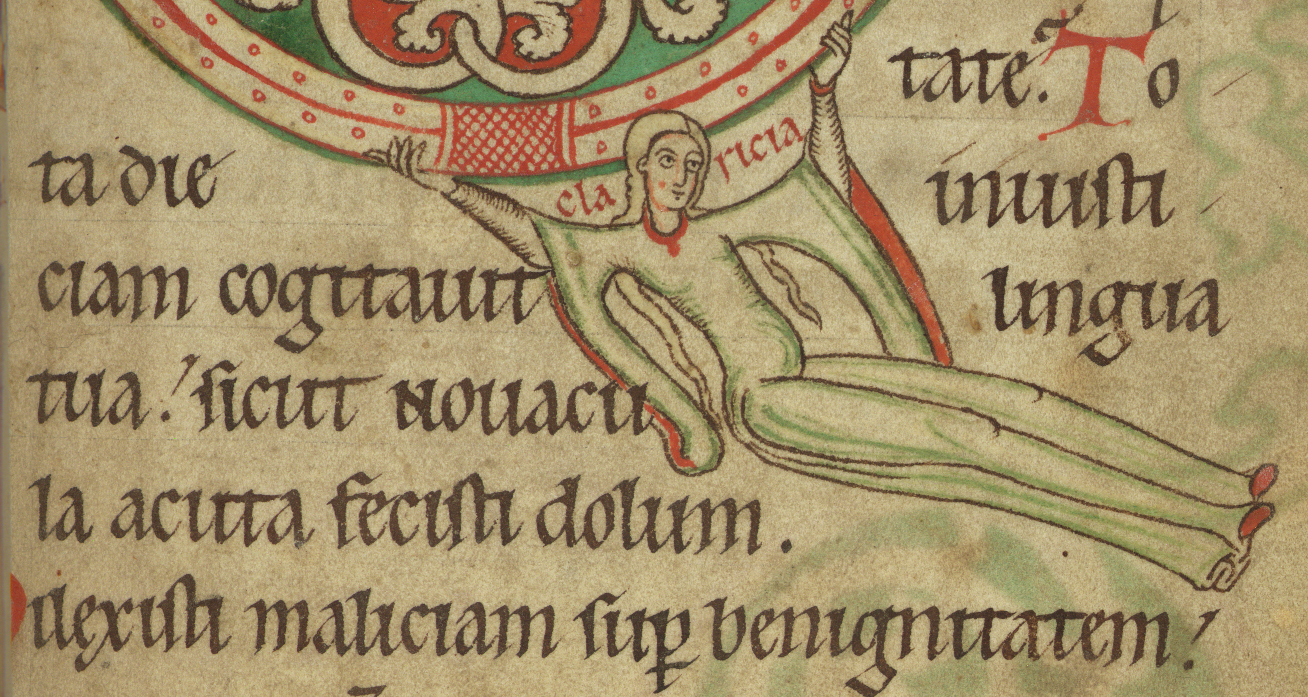 tate. To
ta die iniusti
claricia
ciam cogitauit lingua
tua. sicut nouacu
la acuta fecisti dolum.
ilexisti maliciam sup benignitatem.